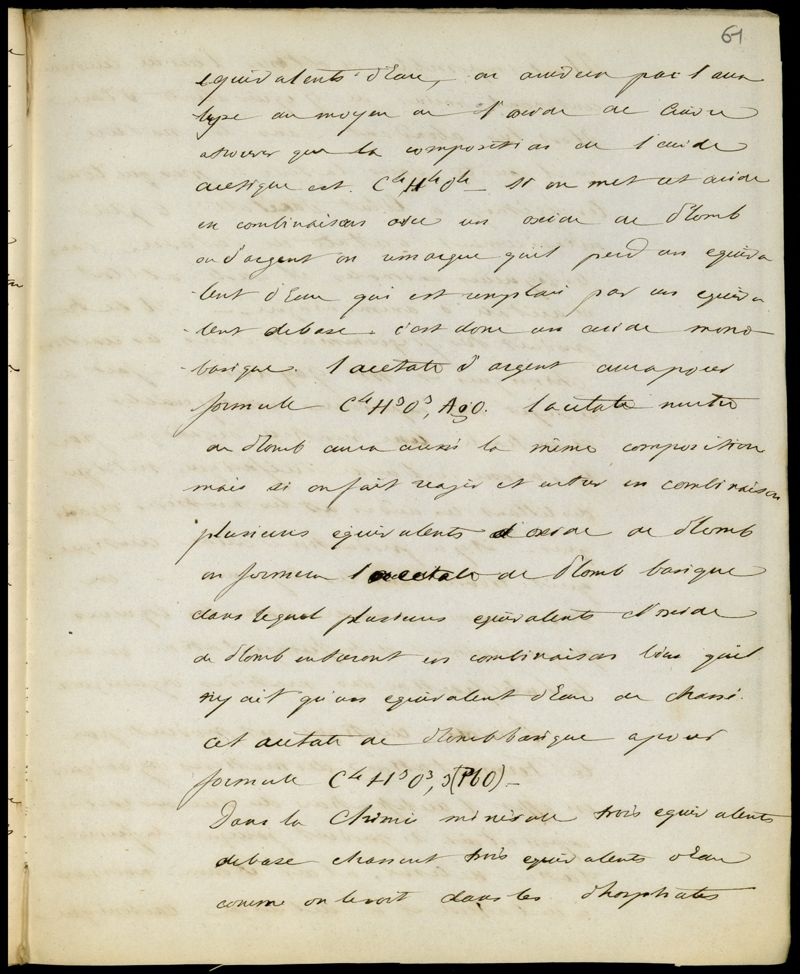 61
equivalents d'Eau, on arrivera par l'ana
lyse au moyen de l'oxide de Cuivre
a trouver que la composition de l'acide
acetique est. C⁴H⁴O⁴ — Si on met cet acide
en combinaison avec un oxide de Plomb
ou d'argent on remarque qu'il perd un equiva
- lent d'Eau qui est remplacé par un equiva
- lent de base. c'est donc un acide mono
- basique. l'acetate d'argent aura pour
formule C⁴H³O³, AgO. l'acetate neutre
de Plomb aura aussi la même composition
mais si on fait reagir et entrer en combinaison
plusieurs equivalents d'oxide de Plomb
on formera l'acetate de Plomb basique
dans lequel plusieurs equivalents d'oxide
de Plomb entreront en combinaison bien qu'il
n'y ait qu'un equivalent d'Eau de chassé.
cet acetate de Plomb basique a pour
formule C⁴H³O³, 3(PbO) —
Dans la Chimie minerale trois equivalents
de base chassent trois equivalents d'Eau
comme on le voit dans les Phosphates